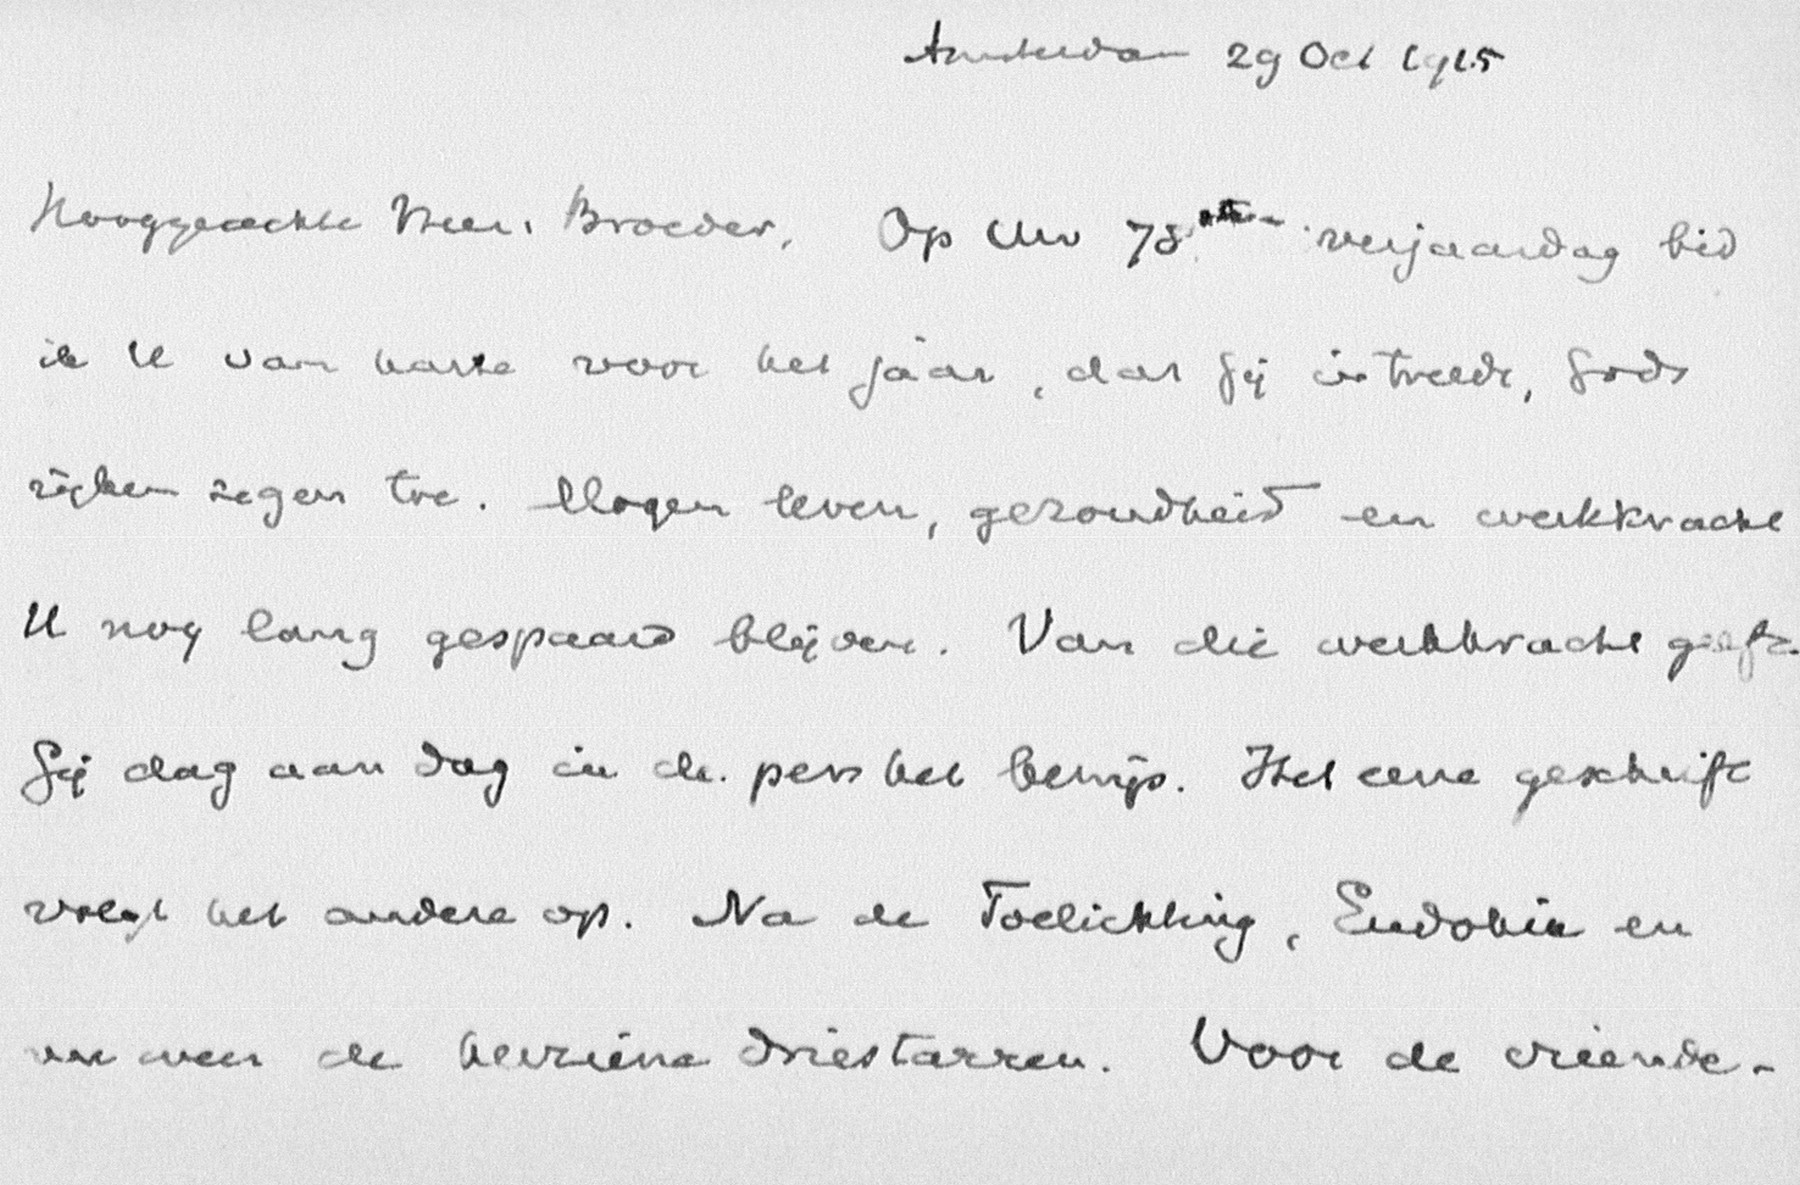 Amsterdam 29 Oct 1915
Hooggeachte Heer, Broeder, Op Uw 78sten verjaardag bid
ik U van harte voor het jaar, dat Gij intreedt, Gods
rijken zegen toe. Mogen leven, gezondheid en werkkracht
U nog lang gespaard blijven. Van die werkkracht geeft
Gij dag aan dag in de pers het bewijs. Het eene geschrift
volgt het andere op. Na de Toelichting, en
nu weer de herziene driestarren. Voor de vriende-